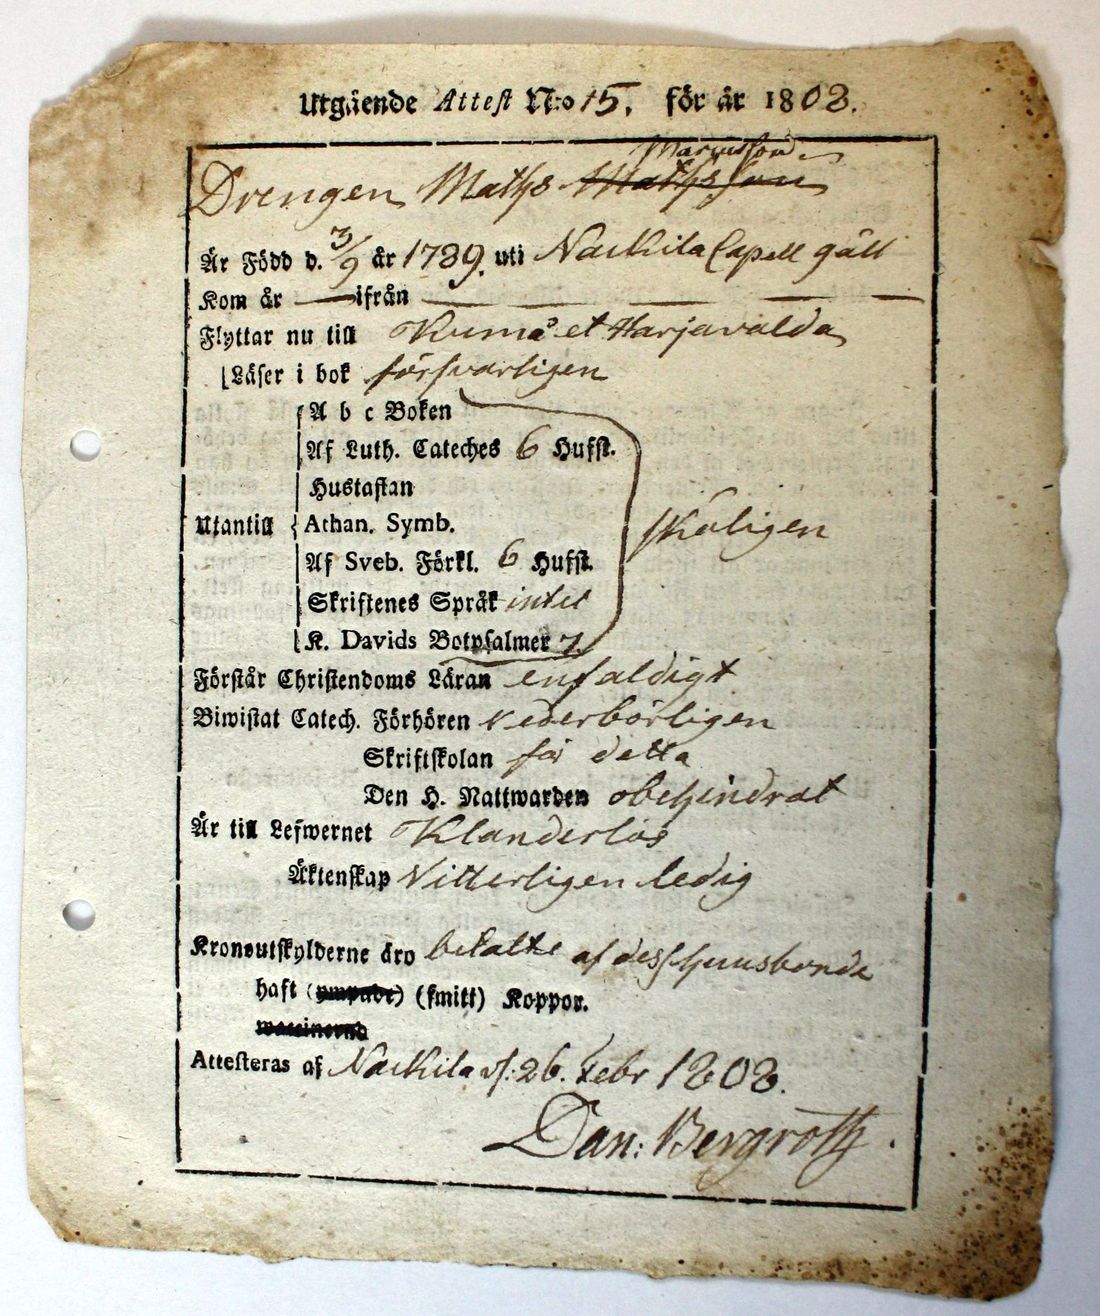 Utgående Attest N:o 15. för år 1808.
Marcusson
Drengen Maths Mathsson
Är Född d. 3/9 år 1789. uti Nackila Capell gäll
Kom år — ifrån —
Flyttar nu till Kumå et Harjavalda
Läser i bok försvarligen
A b c Boken
Af Luth. Cateches 6 Hufst.
Hustaflan
Utantill Athan. Symb. skäligen
Af Sveb. Förkl. 6 Hufst.
Skriftenes Språk intet
K. Davids Botpsalmer 7.
Förstår Christendoms Läran enfaldigt
Biwistat Catech. Förhören vederbörligen
Skriftskolan för detta
Den H. Nattwarden obehindrat
Är till Lefwernet Klanderlös
Äktenskap Vitterligen ledig
Kronoutskylderne äro betalte af dess Huusbonde
haft (ympade) (smitt) Koppor.
waccinerad
Attesteras af Nackila d: 26. Febr 1808.
Dan: Bergroth.